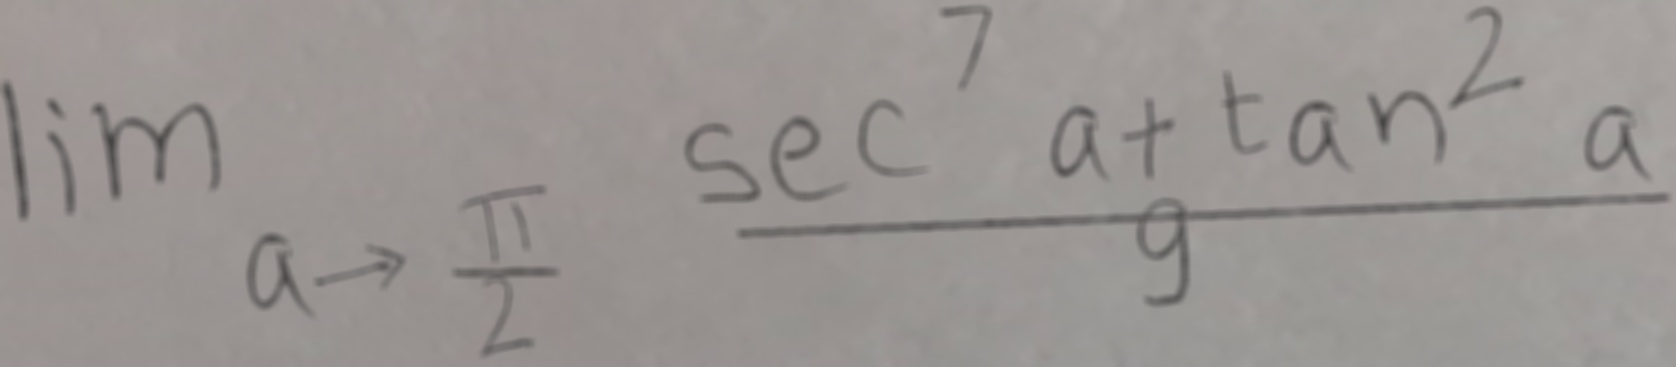 lim a→π/2 (sec^7 a + tan^2 a)/9